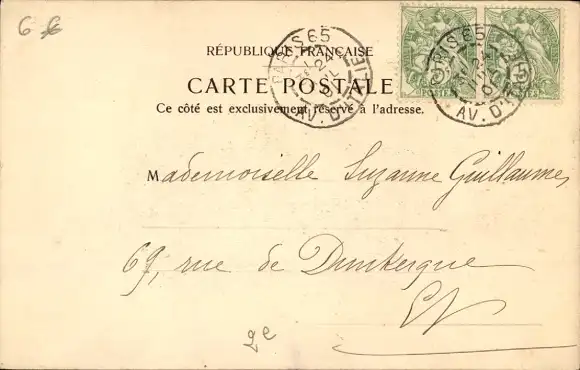 6 €
RÉPUBLIQUE FRANÇAISE
CARTE POSTALE
Ce côté est exclusivement réservé à l'adresse.
PARIS 65
AV. D'ITALIE
PARIS 65
AV. D'ITALIE
POSTES
Mademoiselle Suzanne Guillaume,
69, rue de Dunkerque
EV
2e